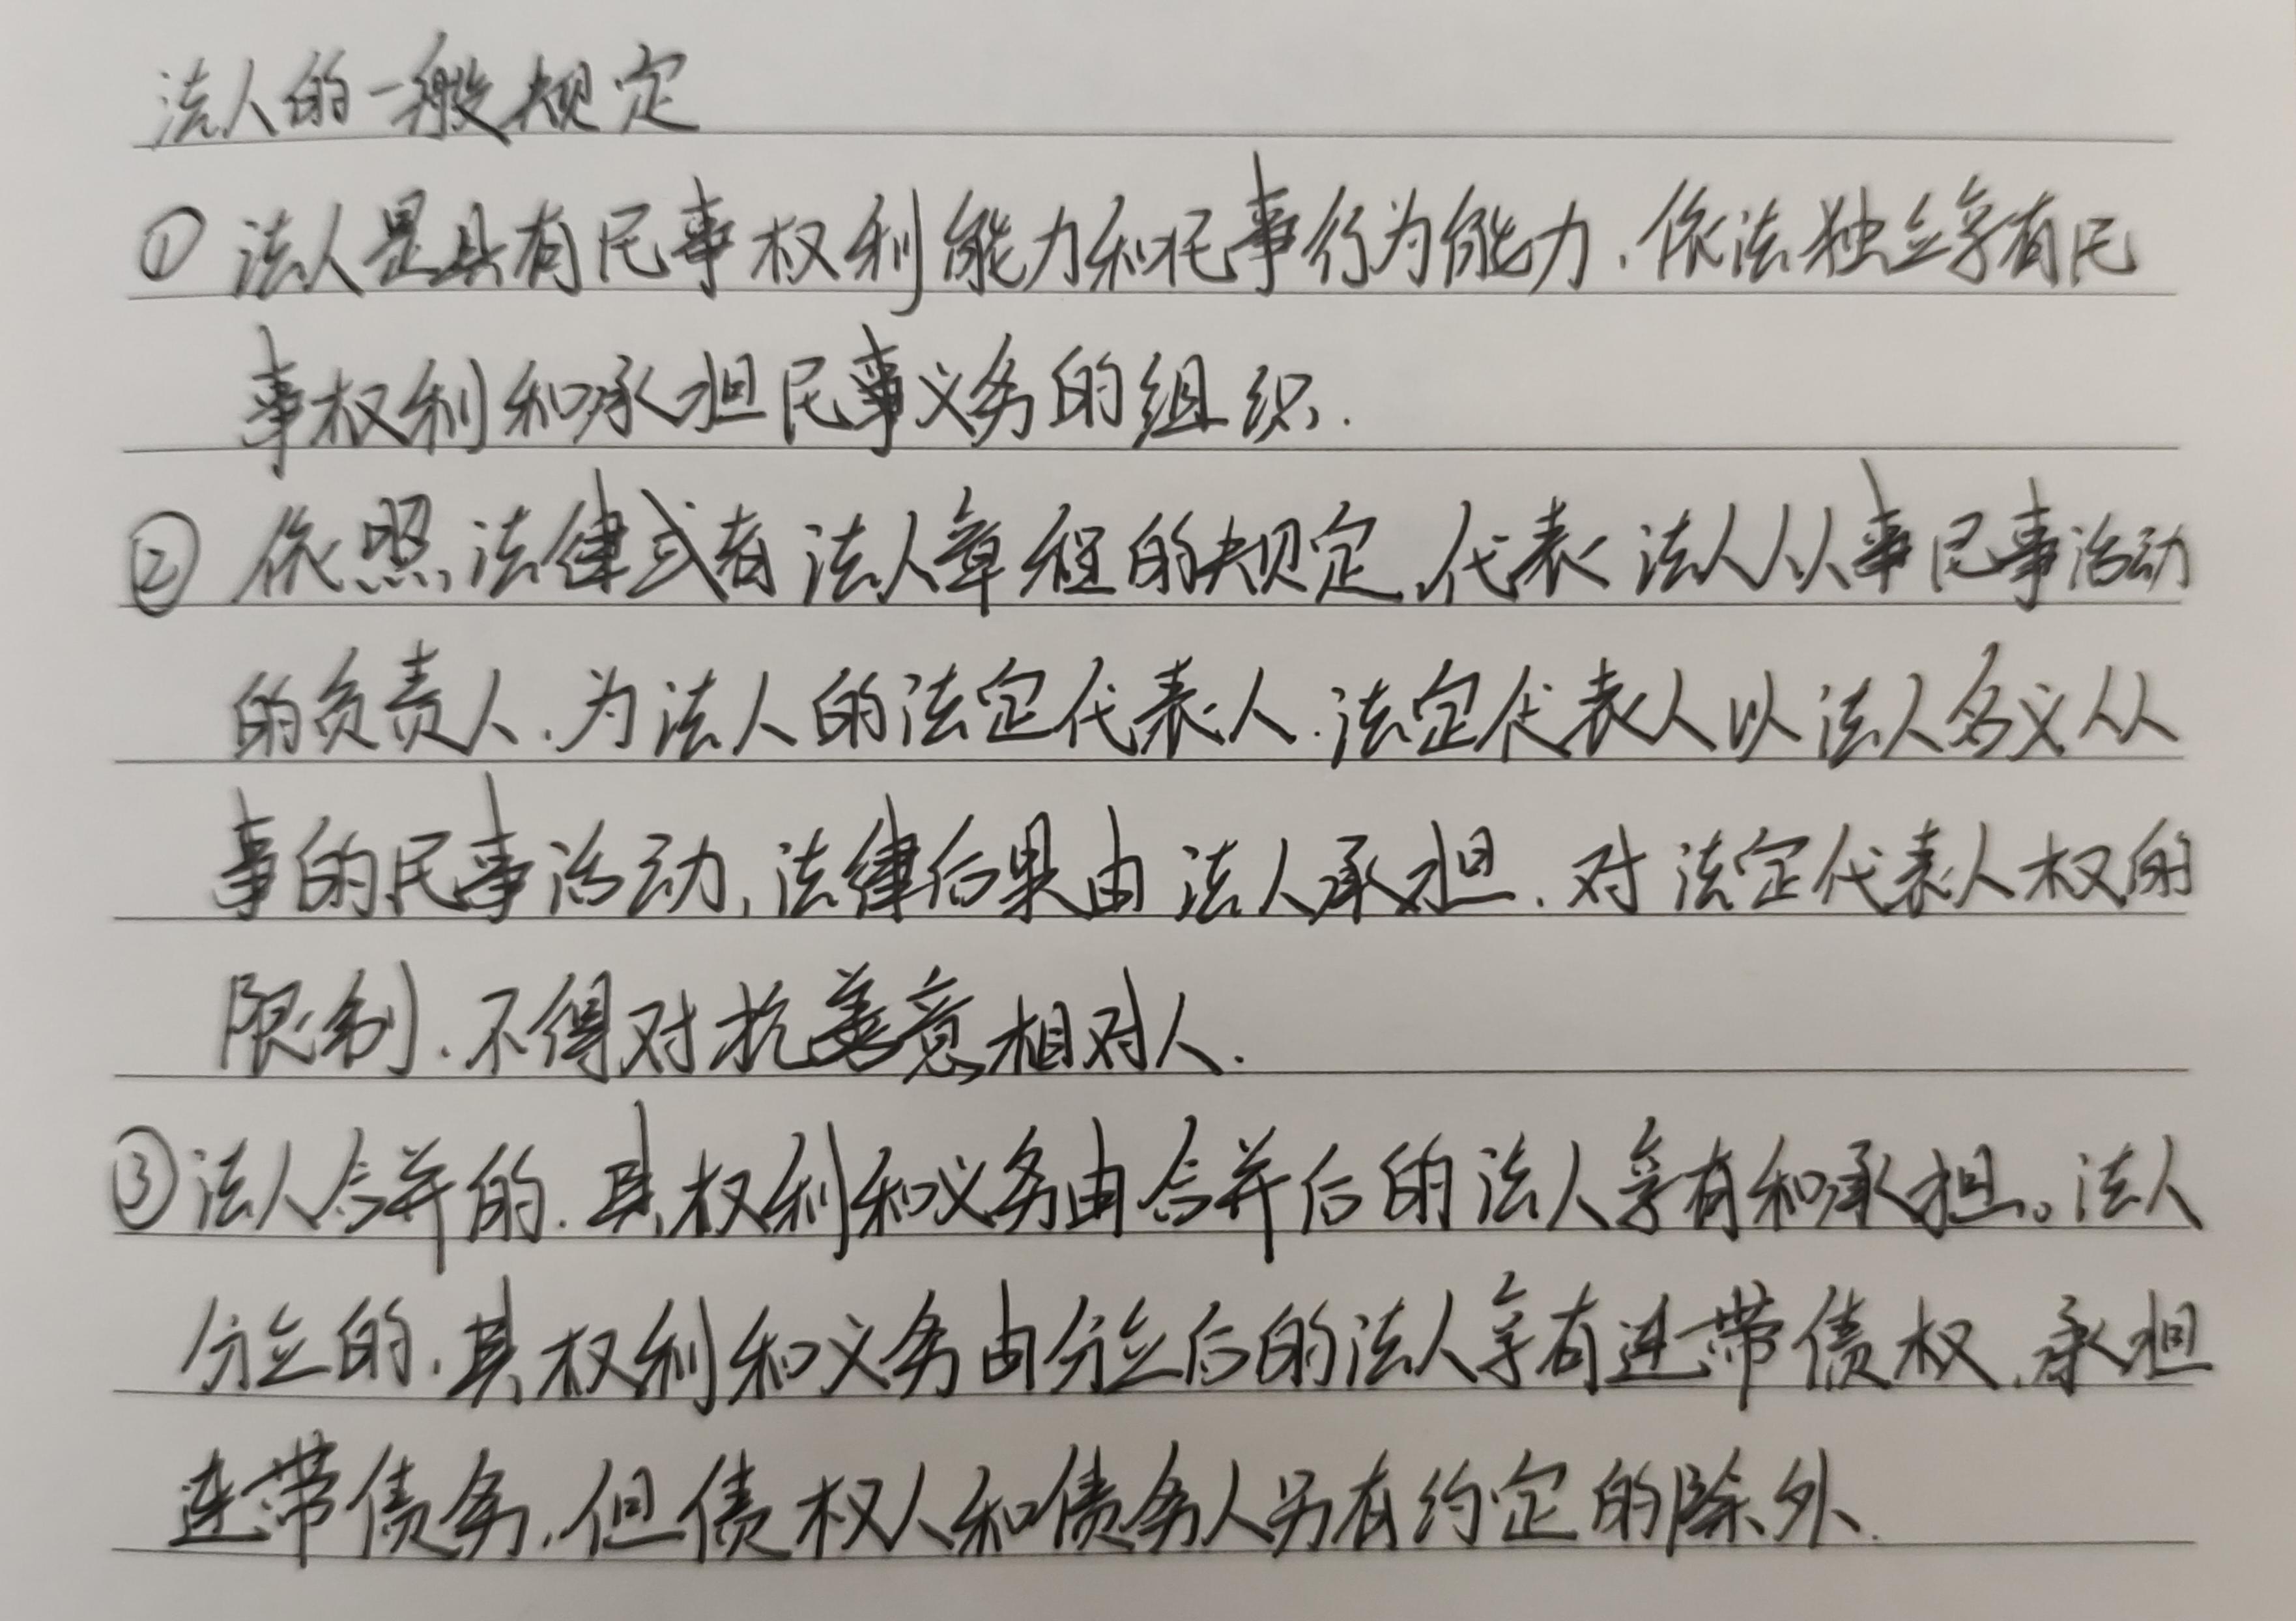 法人的一般规定
① 法人是具有民事权利能力和民事行为能力，依法独立享有民
事权利和承担民事义务的组织.
② 依照法律或者法人章程的规定，代表法人从事民事活动
的负责人，为法人的法定代表人.法定代表人以法人名义从
事的民事活动，法律后果由法人承担.对法定代表人权的
限制，不得对抗善意相对人.
③法人合并的，其权利和义务由合并后的法人享有和承担。法人
分立的，其权利和义务由分立后的法人享有连带债权，承担
连带债务，但债权人和债务人另有约定的除外.